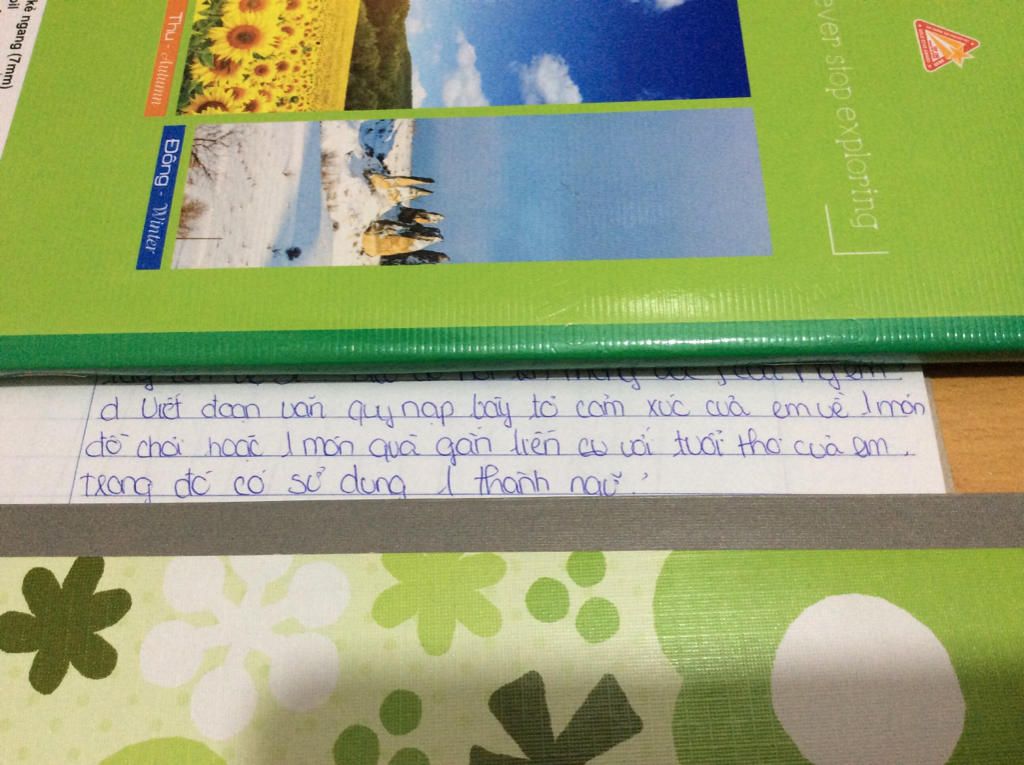 kẻ ngang (7mm)
Thu - Autumn
Đông - Winter
ever stop exploring
d Viết đoạn văn quy nạp bày tỏ cảm xúc của em về 1 món
đồ chơi hoặc 1 món quà gắn liền với tuổi thơ của em.
trong đó có sử dụng 1 thành ngữ.